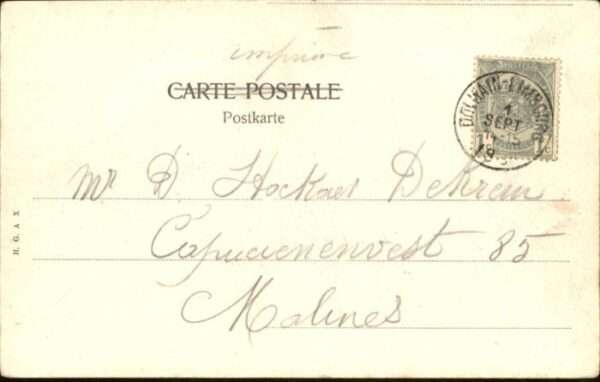 imprimé
CARTE POSTALE
Postkarte
DOLHAIN-LIMBOURG
1
SEPT
19
1c
Mr D. Stockaer Dekrem
Capucienenvest 85
Malines
H. G. A X